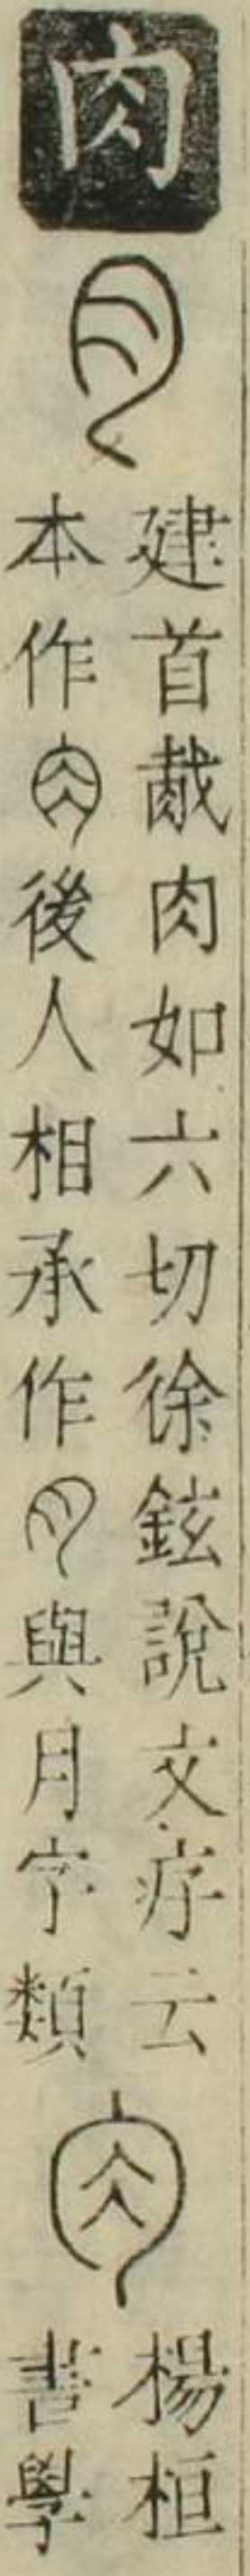 肉
建首胾肉如六切徐鉉說文序云
本作後人相承作與月字類
楊桓
書學